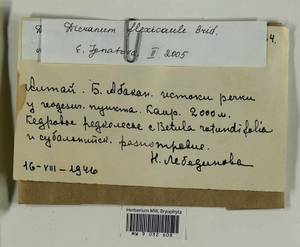 Dicranum flexicaule Brid.
E. Ignatova II 2005
Алтай. Б. Абакан. истоки речки
у геодезич. пункта. Камр. 2000 м.
Кедровое редколесье с Betula rotundifolia
и субальпийск. разнотравие.
Н. Лебединова
16-VIII-1946
Herbarium MW, Bryophyta
MW 9 032 608